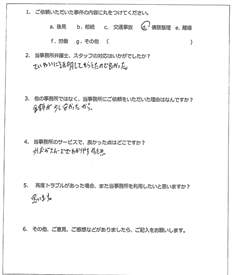 1. ご依頼いただいた事件の内容に丸をつけてください。
a. 後見 b. 相続 c. 交通事故 d. 債務整理 e. 離婚
f. 労働 g. その他（ ）
2. 当事務所弁護士、スタッフの対応はいかがでしたか？
ていねいに説明してもらったので良かった。
3. 他の事務所ではなく、当事務所にご依頼をいただいた理由はなんですか？
4. 当事務所のサービスで、良かった点はどこですか？
5. 再度トラブルがあった場合、また当事務所を利用したいと思いますか？
思います。
6. その他、ご意見、ご感想などがありましたら、ご記入をお願いします。